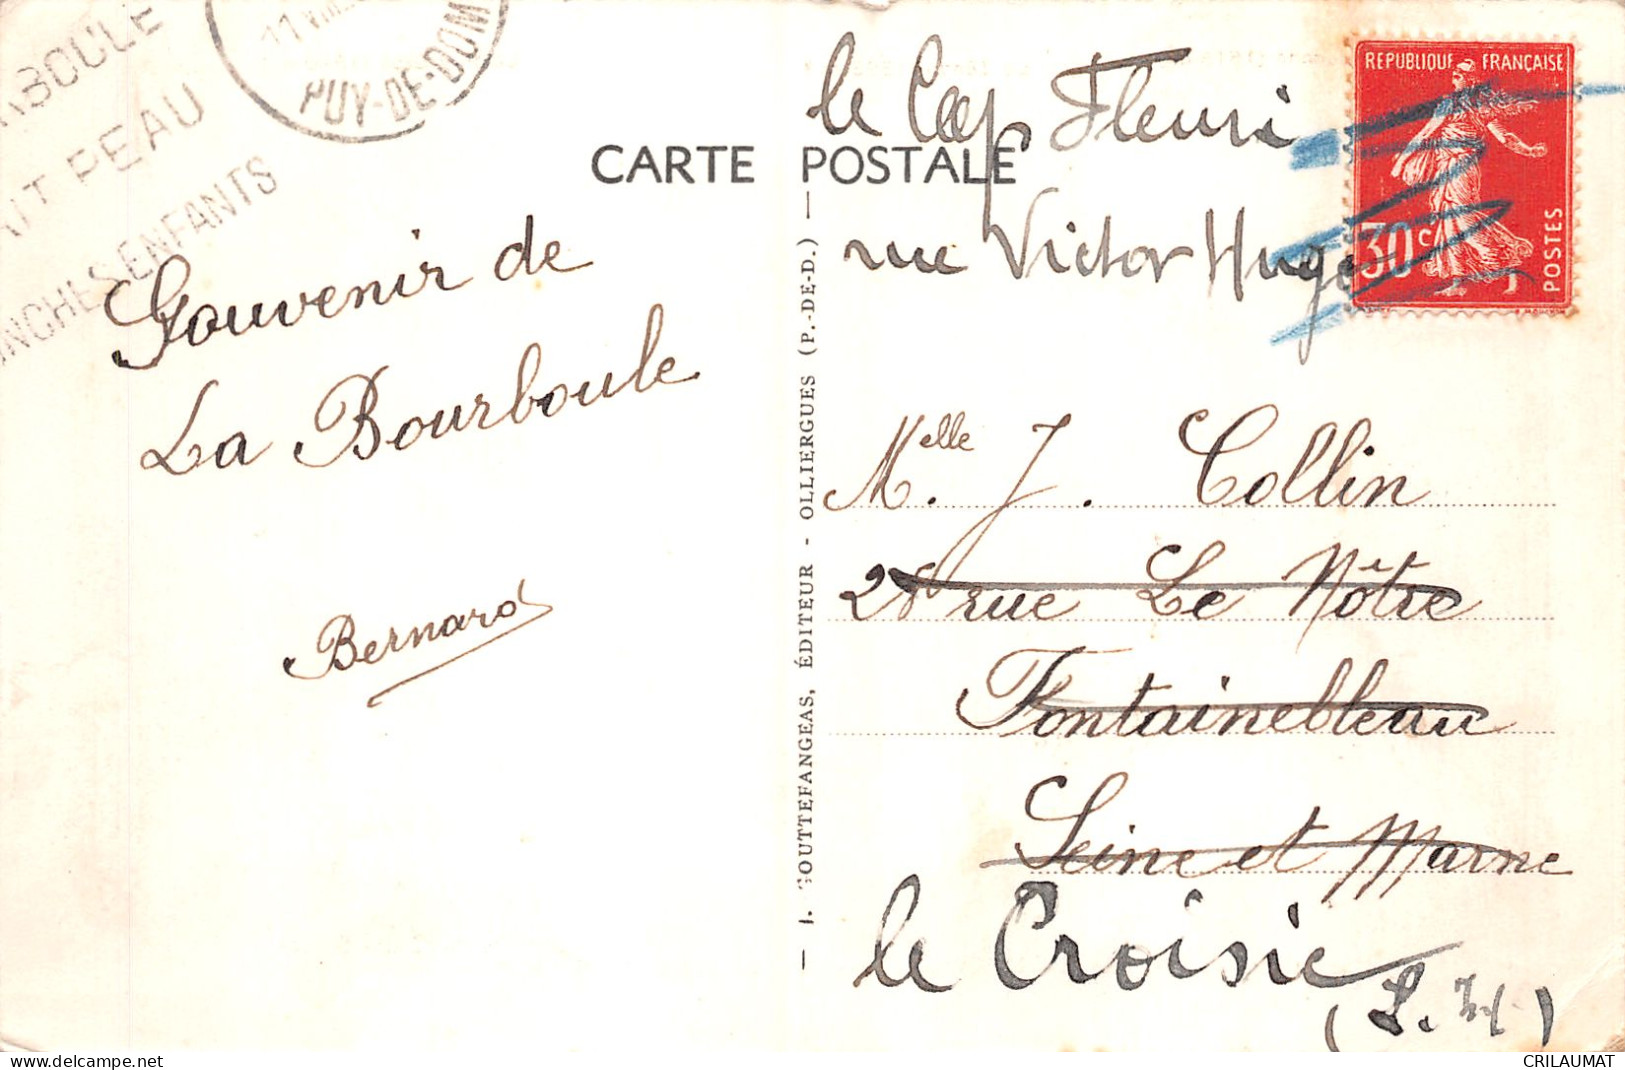 BOULE
PEAU
ENFANTS
PUY-DE-DOM
CARTE POSTALE
Souvenir de
La Bourboule
Bernard
GOUTTEFANGEAS, ÉDITEUR - OLLIERGUES (P.-DE-D.)
REPUBLIQUE FRANÇAISE
30 c
POSTES
le Cap Fleuri
rue Victor Hugo
Melle J. Collin
28 rue Le Nôtre
Fontainebleau
Seine et Marne
le Croisic
(L. I)
CRILAUMAT